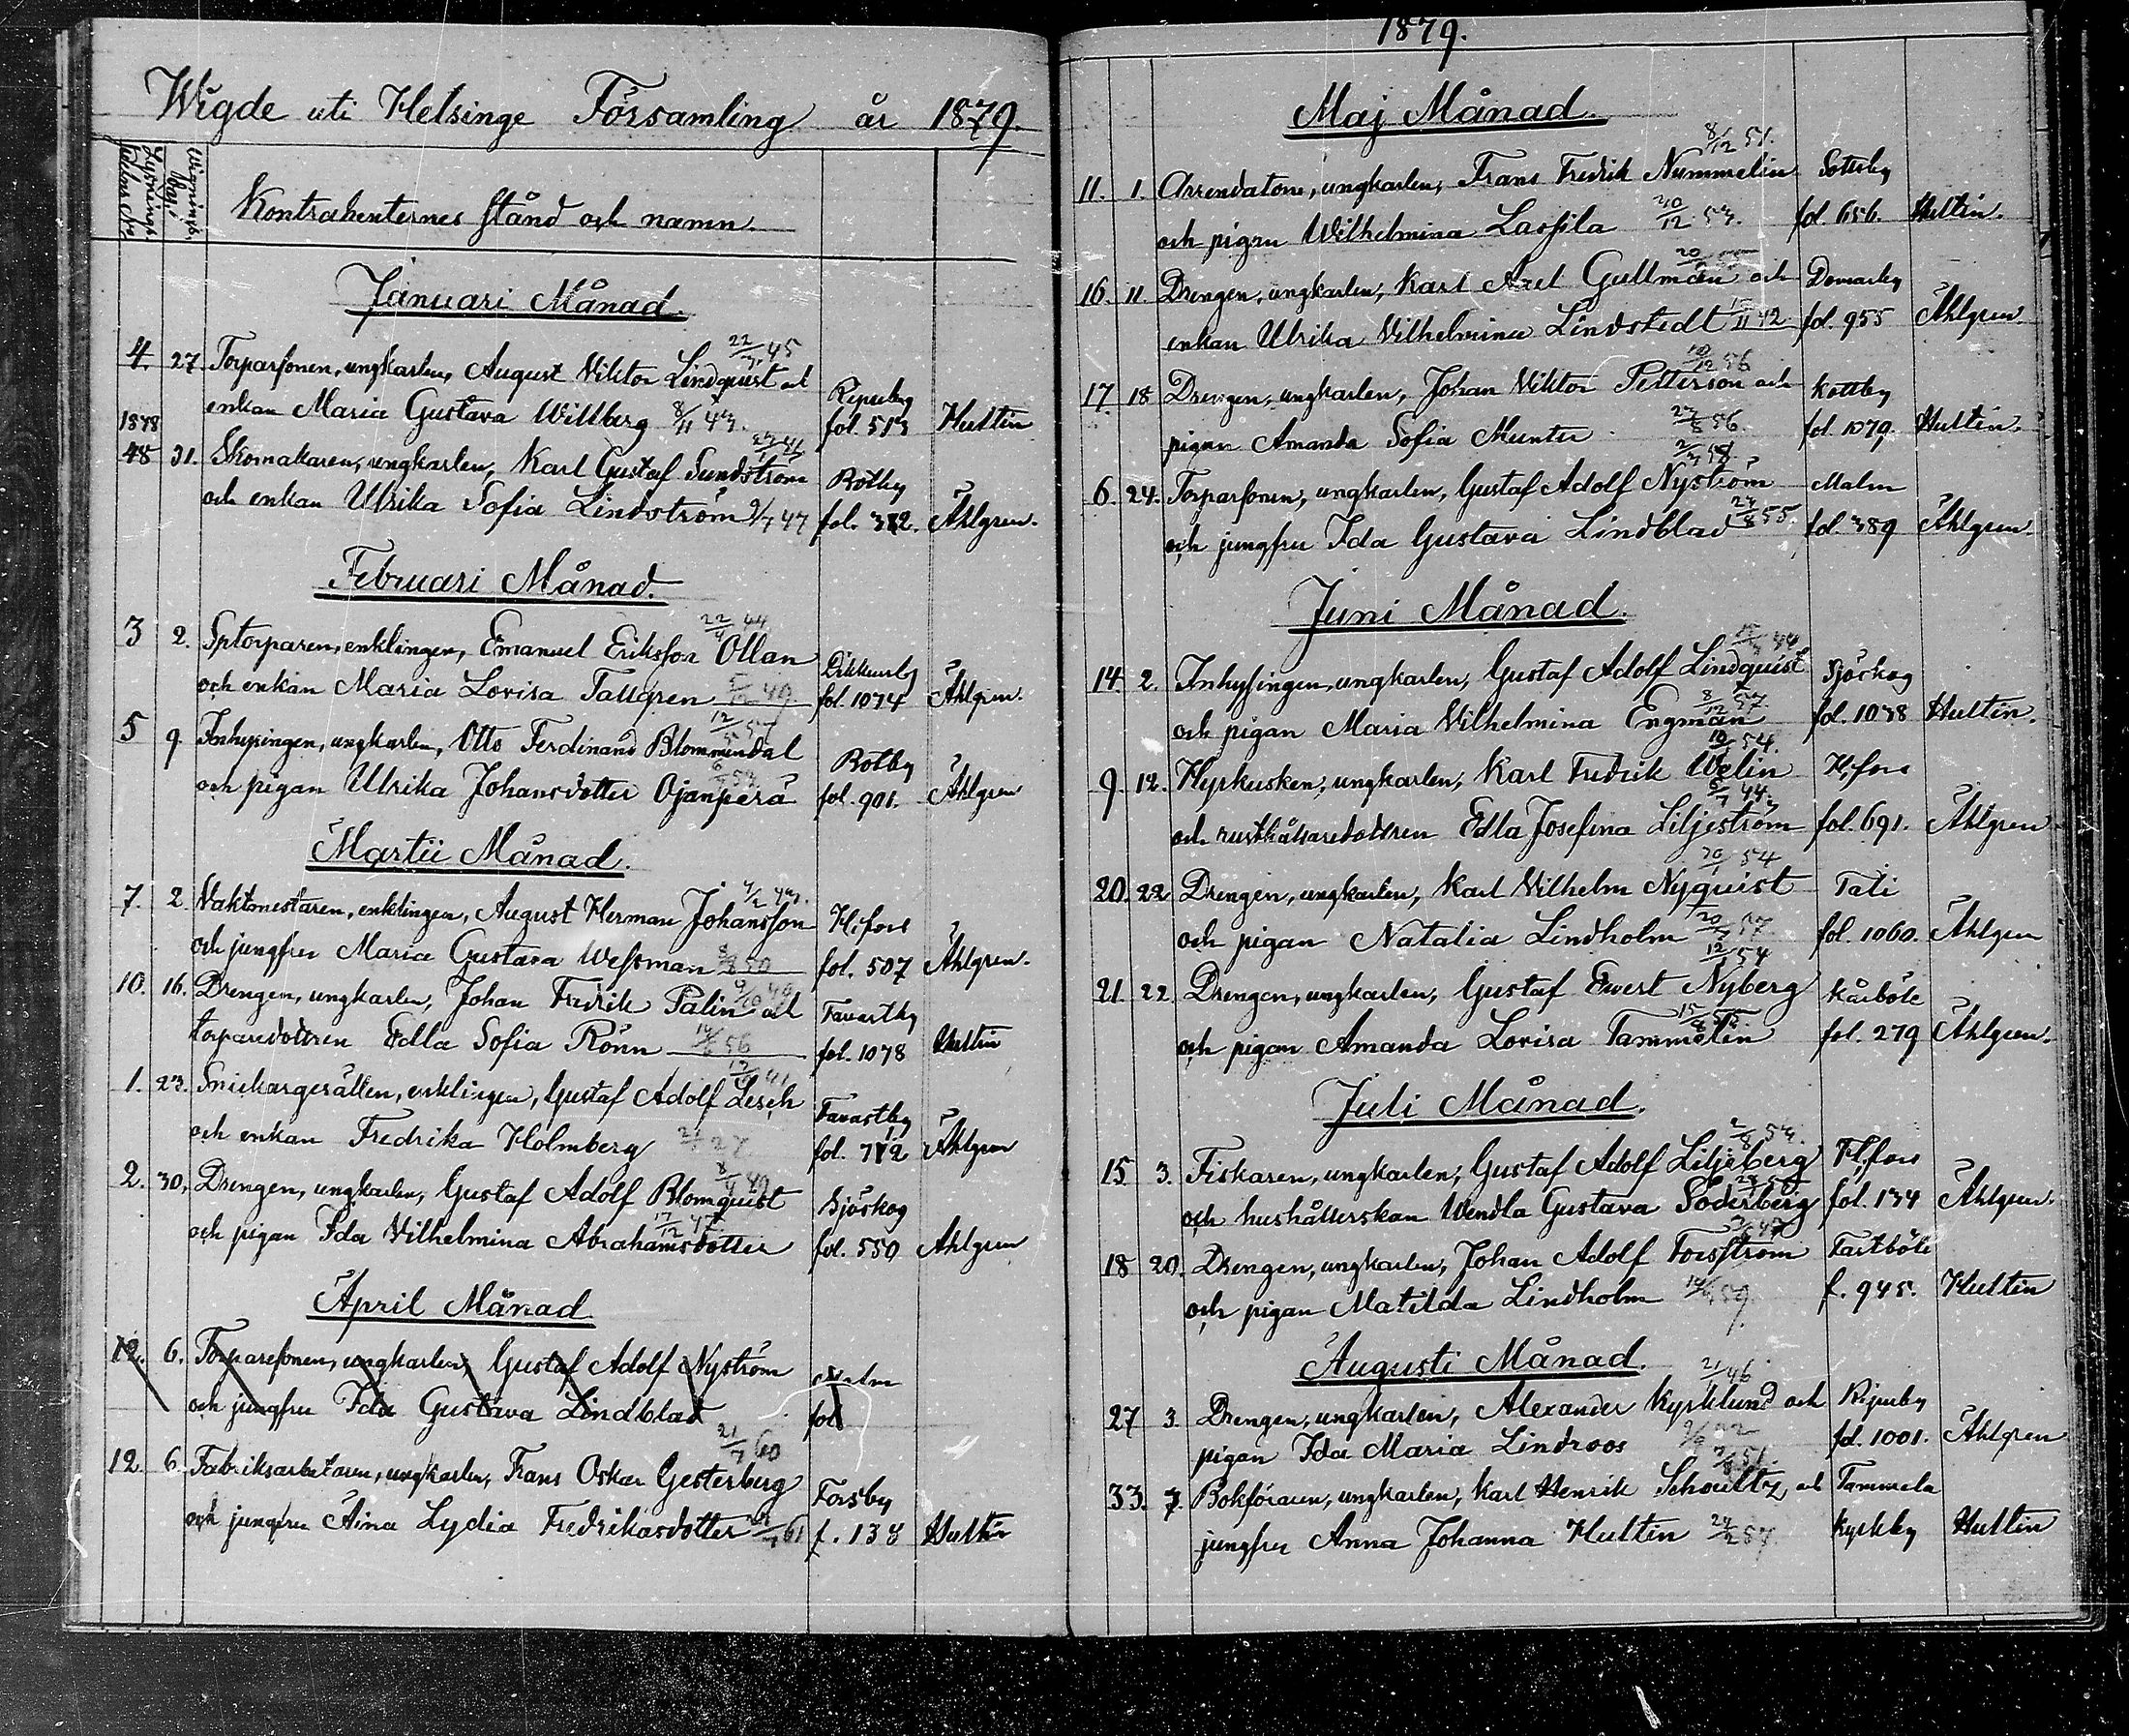 Wigde uti Helsinge Församling år 1879.
Kontrahenternes stånd och namn.
Januari Månad.
4. 27. Torparsonen, ungkarlen, August Viktor Lindquist och 45
enkan Maria Gustava Willberg 8/11 43. fol. 513 Hultin
1878
48 31. Skomakaren, ungkarlen, Karl Gustaf Sundström Rotby
och enkan Ulrika Sofia Lindström 9/7 47 fol. 312. Åhlgren.
Februari Månad.
3 2. Sptorparen, enklingen, Emanuel Eriksson Ollan 22/4 44 Dickursby
och enkan Maria Lovisa Tallgren 49. fol. 1074 Åhlgren.
5 9 Inhysingen, ungkarlen, Otto Ferdinand Blommendal Rotby
och pigan Ulrika Johansdotter Ojanperä fol. 901. Åhlgren
Martii Månad.
7. 2. Vaktmestaren, enklingen, August Herman Johansson H:fors
och jungfru Maria Gustava Wessman fol. 507 Åhlgren.
10. 16. Drengen, ungkarlen, Johan Fredrik Palin och Tavastby
torparedottren Edla Sofia Rönn 56 fol. 1078 Hultin
1. 23. Snickargesällen, enklingen, Gustaf Adolf Lesch Tavastby
och enkan Fredrika Holmberg 27. fol. 712 Åhlgren
2. 30. Drengen, ungkarlen, Gustaf Adolf Blomquist Sjöskog
och pigan Ida Vilhelmina Abrahamsdotter 17/12 fol. 550 Åhlgren
April Månad
12. 6. Torparesonen, ungkarlen, Gustaf Adolf Nyström Malm
och jungfru Ida Gustava Lindblad fol
12. 6. Fabriksarbetaren, ungkarlen, Frans Oskar Gesterberg 21/7 60 Forsby
och jungfru Aina Lydia Fredrikasdotter 61 f. 138 Hultin
1879.
Maj Månad.
11. 1. Arrendatorn, ungkarlen, Frans Fredrik Nummelin 8/12 51. Sottsby
och pigan Wilhelmina Lassila 20/12 53. fol. 656. Hultin.
16. 11. Drengen, ungkarlen, Karl Axel Gullman och Domarby
enkan Ulrika Vilhelmina Lindstedt 15/11 42 fol. 955 Åhlgren.
17 18 Drengen, ungkarlen, Johan Viktor Petterson och 10/12 56 Kottby
pigan Amanda Sofia Munter 27/8 56 fol. 1079. Hultin.
6. 24. Torparsonen, ungkarlen, Gustaf Adolf Nyström Malm
och jungfru Ida Gustava Lindblad 27/8 55. fol. 389 Åhlgren.
Juni Månad.
14. 2. Inhysingen, ungkarlen, Gustaf Adolf Lindquist 44 Sjöskog
och pigan Maria Vilhelmina Engman 8/12 57. fol. 1038 Hultin.
9. 12. Hyrkusken, ungkarlen, Karl Fredrik Welin 54. H:fors
och rusthållaredottren Edla Josefina Liljeström 44. fol. 691. Åhlgren
20. 22 Drengen, ungkarlen, Karl Vilhelm Nyquist 54 Tali
och pigan Natalia Lindholm 57. fol. 1060. Åhlgren
21. 22. Drengen, ungkarlen, Gustaf Ewert Nyberg 54 Kårböle
och pigan Amanda Lovisa Tammelin 15/8 fol. 279 Åhlgren.
Juli Månad.
15 3. Fiskaren, ungkarlen, Gustaf Adolf Liljeberg 2/8 53. H:fors
och hushållerskan Wendla Gustava Söderberg fol. 134 Åhlgren.
18 20. Drengen, ungkarlen, Johan Adolf Forsström Tastböle
och pigan Matilda Lindholm 59. f. 945. Hultin
Augusti Månad.
27 3. Drengen, ungkarlen, Alexander Kyrklund och 46 Ripuby
pigan Ida Maria Lindroos fol. 1001. Åhlgren
33. 7. Bokföraren, ungkarlen, Karl Henrik Schoultz, och 51. Tammela
jungfru Anna Johanna Hultin 24/2 57. Kyrkby Hultin